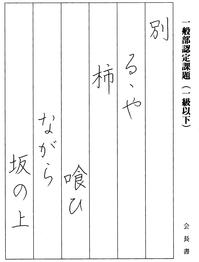 一般部認定課題（一級以下）
別
るゝや
柿
喰ひ
ながら
坂の上
会長書